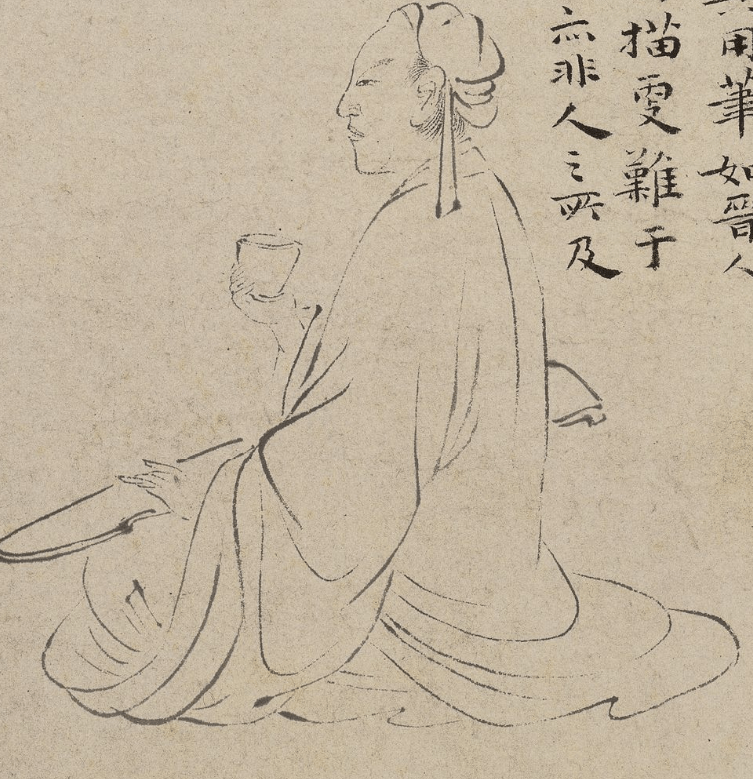 用筆如晉人
描更難于
亦非人之所及